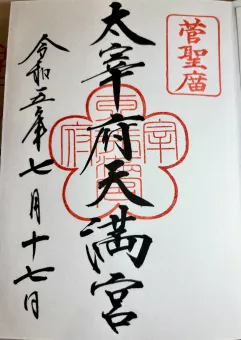 菅聖廟
太宰府天満宮
令和五年七月十七日